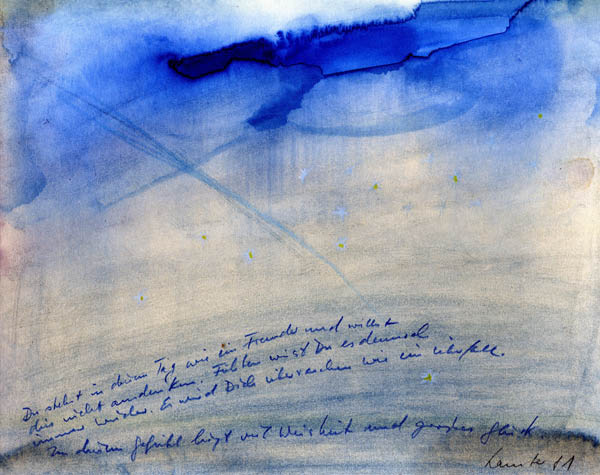 Du stehst in deinem Tag wie ein Fremder und willst
dies nicht ausdenken. Fühlen wirst Du es dennoch
immer wieder. Es wird Dich überraschen wie ein Überfall.
In diesem Gefühl liegt viel Weisheit und großes Glück.